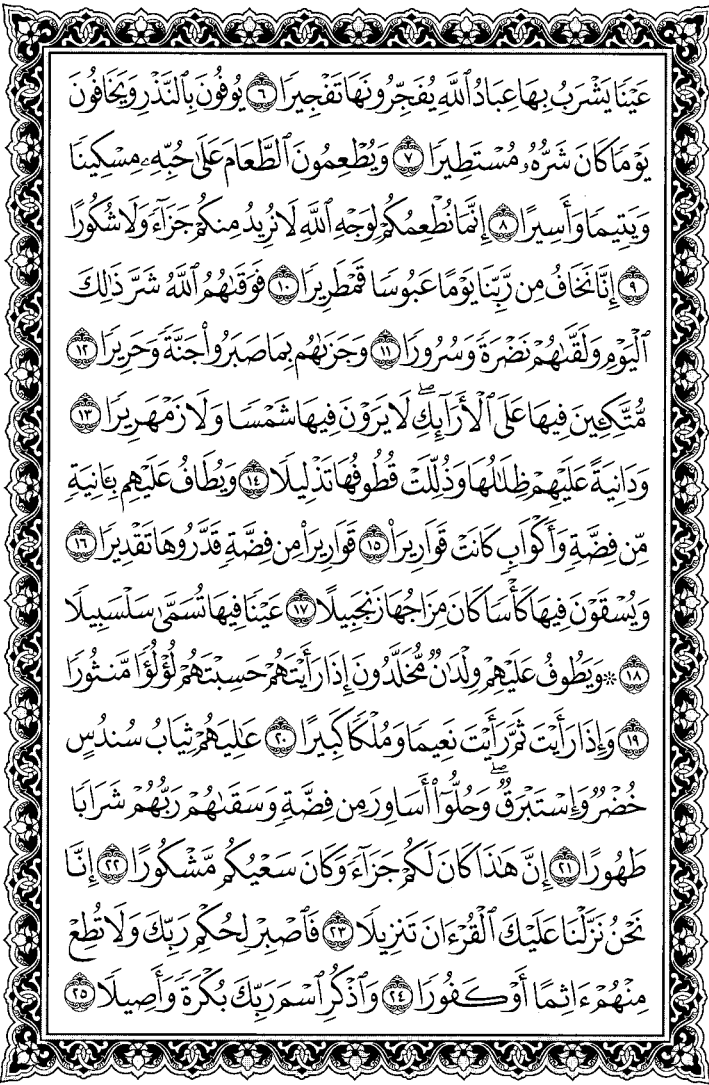 عَيْنٗا يَشۡرَبُ بِهَا عِبَادُ ٱللَّهِ يُفَجِّرُونَهَا تَفۡجِيرٗا ٦ يُوفُونَ بِٱلنَّذۡرِ وَيَخَافُونَ
يَوۡمٗا كَانَ شَرُّهُۥ مُسۡتَطِيرٗا ٧ وَيُطۡعِمُونَ ٱلطَّعَامَ عَلَىٰ حُبِّهِۦ مِسۡكِينٗا
وَيَتِيمٗا وَأَسِيرًا ٨ إِنَّمَا نُطۡعِمُكُمۡ لِوَجۡهِ ٱللَّهِ لَا نُرِيدُ مِنكُمۡ جَزَآءٗ وَلَا شُكُورًا
٩ إِنَّا نَخَافُ مِن رَّبِّنَا يَوۡمًا عَبُوسٗا قَمۡطَرِيرٗا ١٠ فَوَقَىٰهُمُ ٱللَّهُ شَرَّ ذَٰلِكَ
ٱلۡيَوۡمِ وَلَقَّىٰهُمۡ نَضۡرَةٗ وَسُرُورٗا ١١ وَجَزَىٰهُم بِمَا صَبَرُواْ جَنَّةٗ وَحَرِيرٗا ١٢
مُّتَّكِـِٔينَ فِيهَا عَلَى ٱلۡأَرَآئِكِۖ لَا يَرَوۡنَ فِيهَا شَمۡسٗا وَلَا زَمۡهَرِيرٗا ١٣
وَدَانِيَةً عَلَيۡهِمۡ ظِلَٰلُهَا وَذُلِّلَتۡ قُطُوفُهَا تَذۡلِيلٗا ١٤ وَيُطَافُ عَلَيۡهِم بِـَٔانِيَةٖ
مِّن فِضَّةٖ وَأَكۡوَابٖ كَانَتۡ قَوَارِيرَا۠ ١٥ قَوَارِيرَاْ مِن فِضَّةٖ قَدَّرُوهَا تَقۡدِيرٗا ١٦
وَيُسۡقَوۡنَ فِيهَا كَأۡسٗا كَانَ مِزَاجُهَا زَنجَبِيلًا ١٧ عَيۡنٗا فِيهَا تُسَمَّىٰ سَلۡسَبِيلٗا
١٨ ۞ وَيَطُوفُ عَلَيۡهِمۡ وِلۡدَٰنٞ مُّخَلَّدُونَ إِذَا رَأَيۡتَهُمۡ حَسِبۡتَهُمۡ لُؤۡلُؤٗا مَّنثُورٗا
١٩ وَإِذَا رَأَيۡتَ ثَمَّ رَأَيۡتَ نَعِيمٗا وَمُلۡكٗا كَبِيرًا ٢٠ عَٰلِيَهُمۡ ثِيَابُ سُندُسٍ
خُضۡرٞ وَإِسۡتَبۡرَقٞۖ وَحُلُّوٓاْ أَسَاوِرَ مِن فِضَّةٖ وَسَقَىٰهُمۡ رَبُّهُمۡ شَرَابٗا
طَهُورًا ٢١ إِنَّ هَٰذَا كَانَ لَكُمۡ جَزَآءٗ وَكَانَ سَعۡيُكُم مَّشۡكُورًا ٢٢ إِنَّا
نَحۡنُ نَزَّلۡنَا عَلَيۡكَ ٱلۡقُرۡءَانَ تَنزِيلٗا ٢٣ فَٱصۡبِرۡ لِحُكۡمِ رَبِّكَ وَلَا تُطِعۡ
مِنۡهُمۡ ءَاثِمًا أَوۡ كَفُورٗا ٢٤ وَٱذۡكُرِ ٱسۡمَ رَبِّكَ بُكۡرَةٗ وَأَصِيلٗا ٢٥